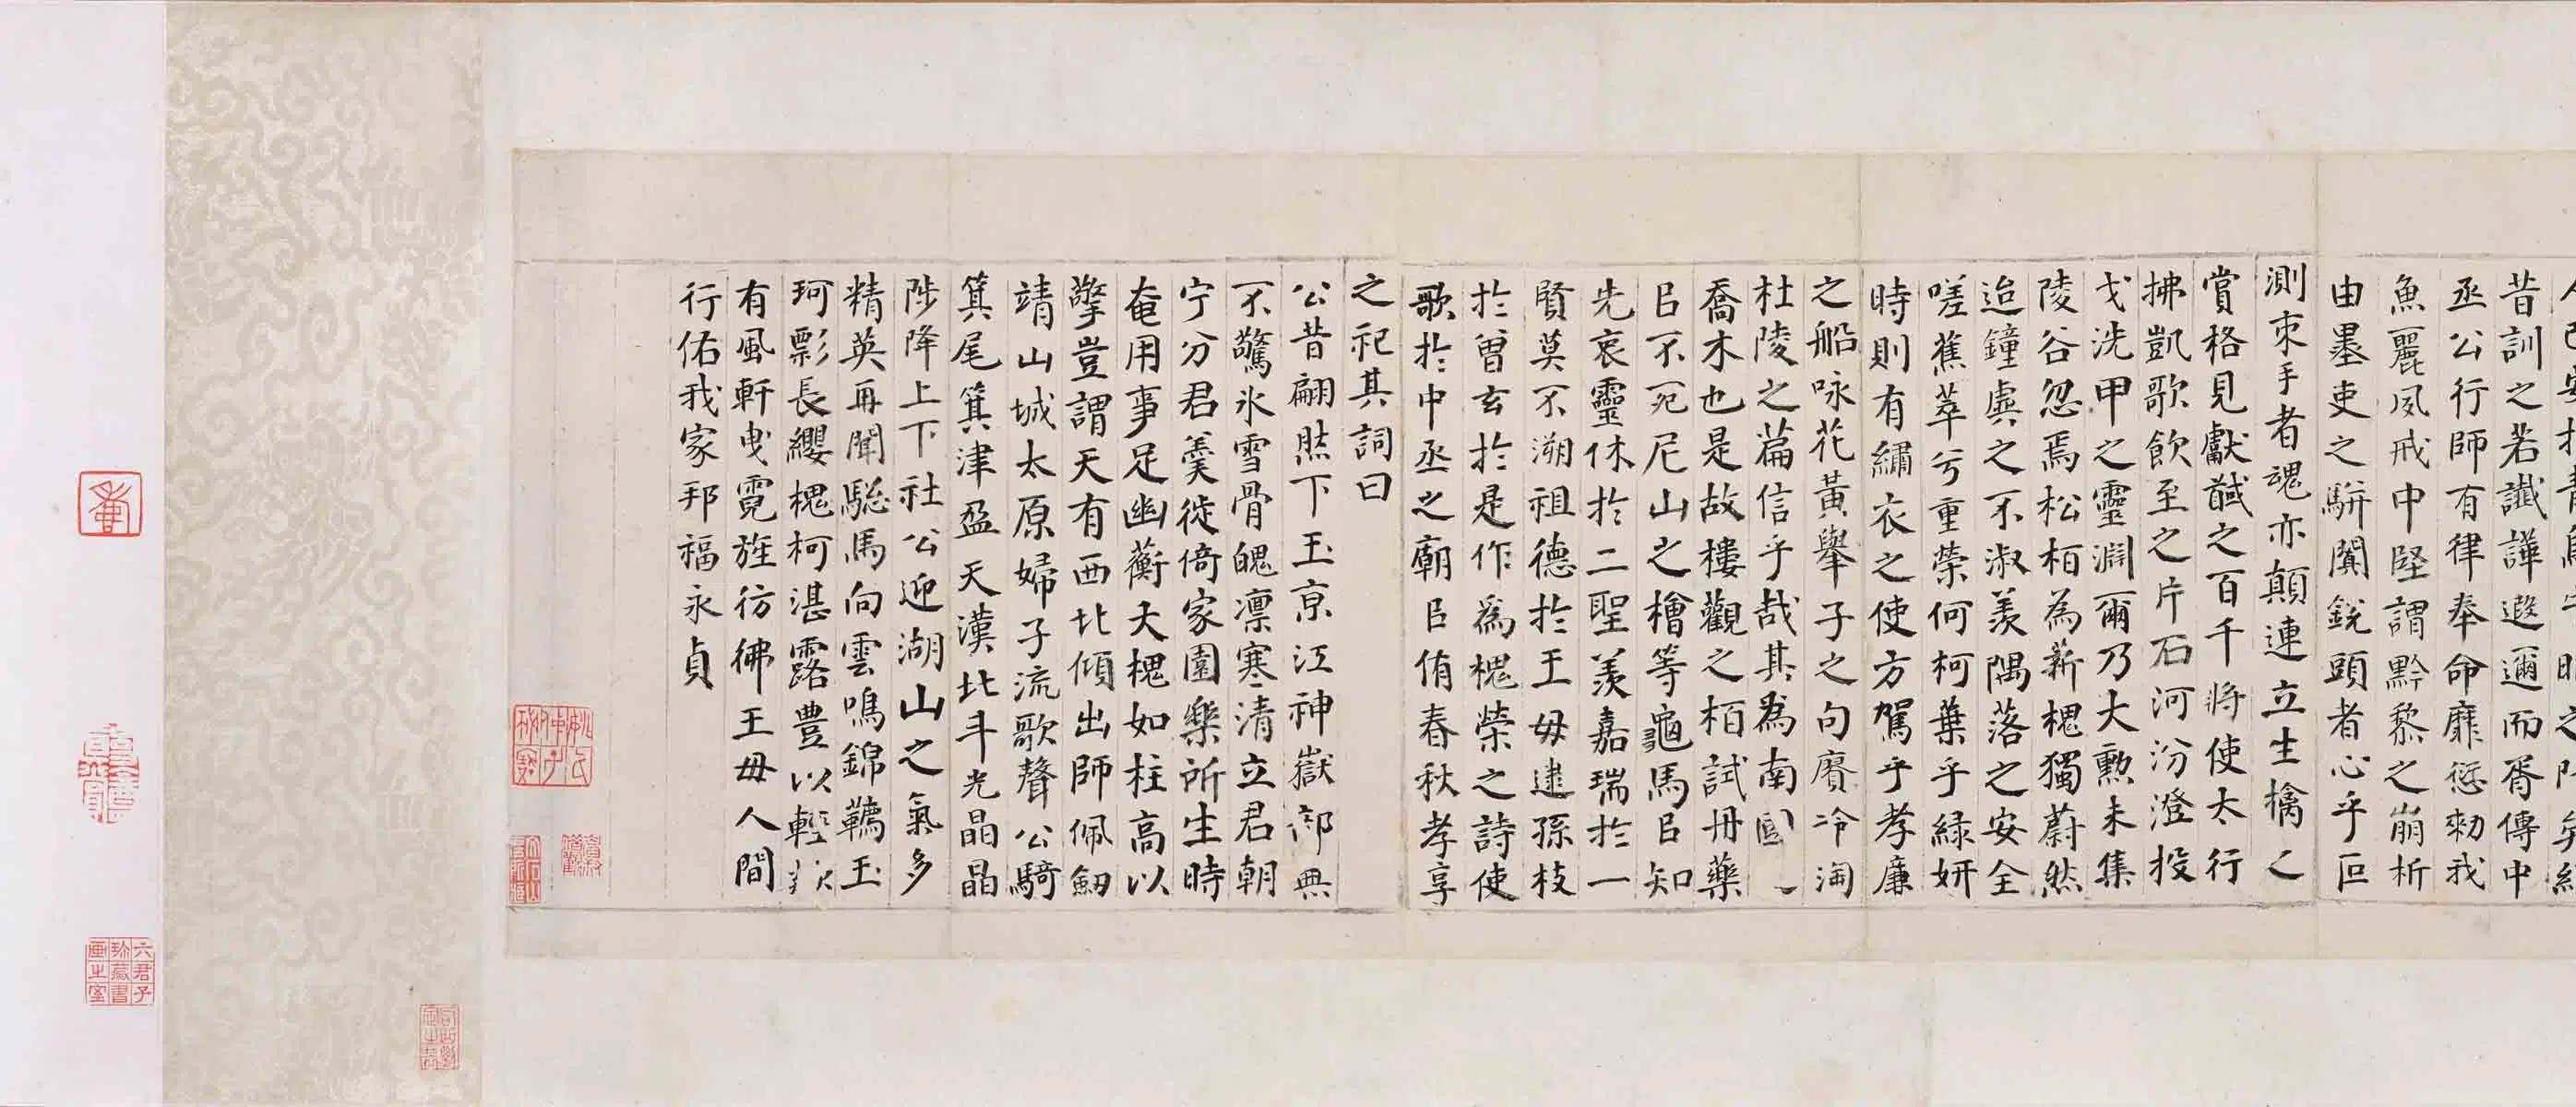 昔訓之若讖譁遐邇而胥傳中
丞公行師有律奉命靡愆勅我
魚麗夙戒中堅謂黔黎之崩析
由墨吏之駢闐銳頭者心乎叵
測束手者魂亦顛連立生擒之
賞格見獻馘之百千將使太行
拂凱歌飲至之片石河汾澄投
戈洗甲之靈淵爾乃大勳未集
陵谷忽焉松柏為薪槐獨蔚然
迨鐘虡之不淑羨隅落之安全
嗟蕉萃兮重榮何柯葉乎綠妍
時則有繡衣之使方駕乎孝廉
之船咏花黃舉子之句賡冷淘
杜陵之篇信乎哉其為南國
喬木也是故樓觀之柏試丹藥
㠯不死尼山之檜等龜馬㠯知
先哀靈休於二聖羨嘉瑞於一
賢莫不溯祖德於王母逮孫枝
於曾玄於是作為槐榮之詩使
歌於中丞之廟㠯侑春秋孝享
之祀其詞曰
公昔翩然下玉京江神嶽都興
不驚氷雪骨魄凛寒清立君朝
宁分君羹徙倚家園樂所生時
奄用事足幽蘅大槐如柱高以
擎豈謂天有西北傾出師佩劒
靖山城太原婦子流歌聲公騎
箕尾箕津盈天漢北斗光晶晶
陟降上下社公迎湖山之氣多
精英再聞驄馬向雲鳴錦韉玉
珂影長纓槐柯湛露豊以輕
有風軒曳霓旌彷彿王母人間
行佑我家邦福永貞
六君子
珎藏書
畫之室